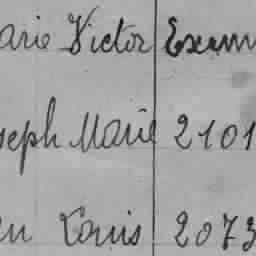 arie Victor Exem
seph Marie 2101
en Louis 2073